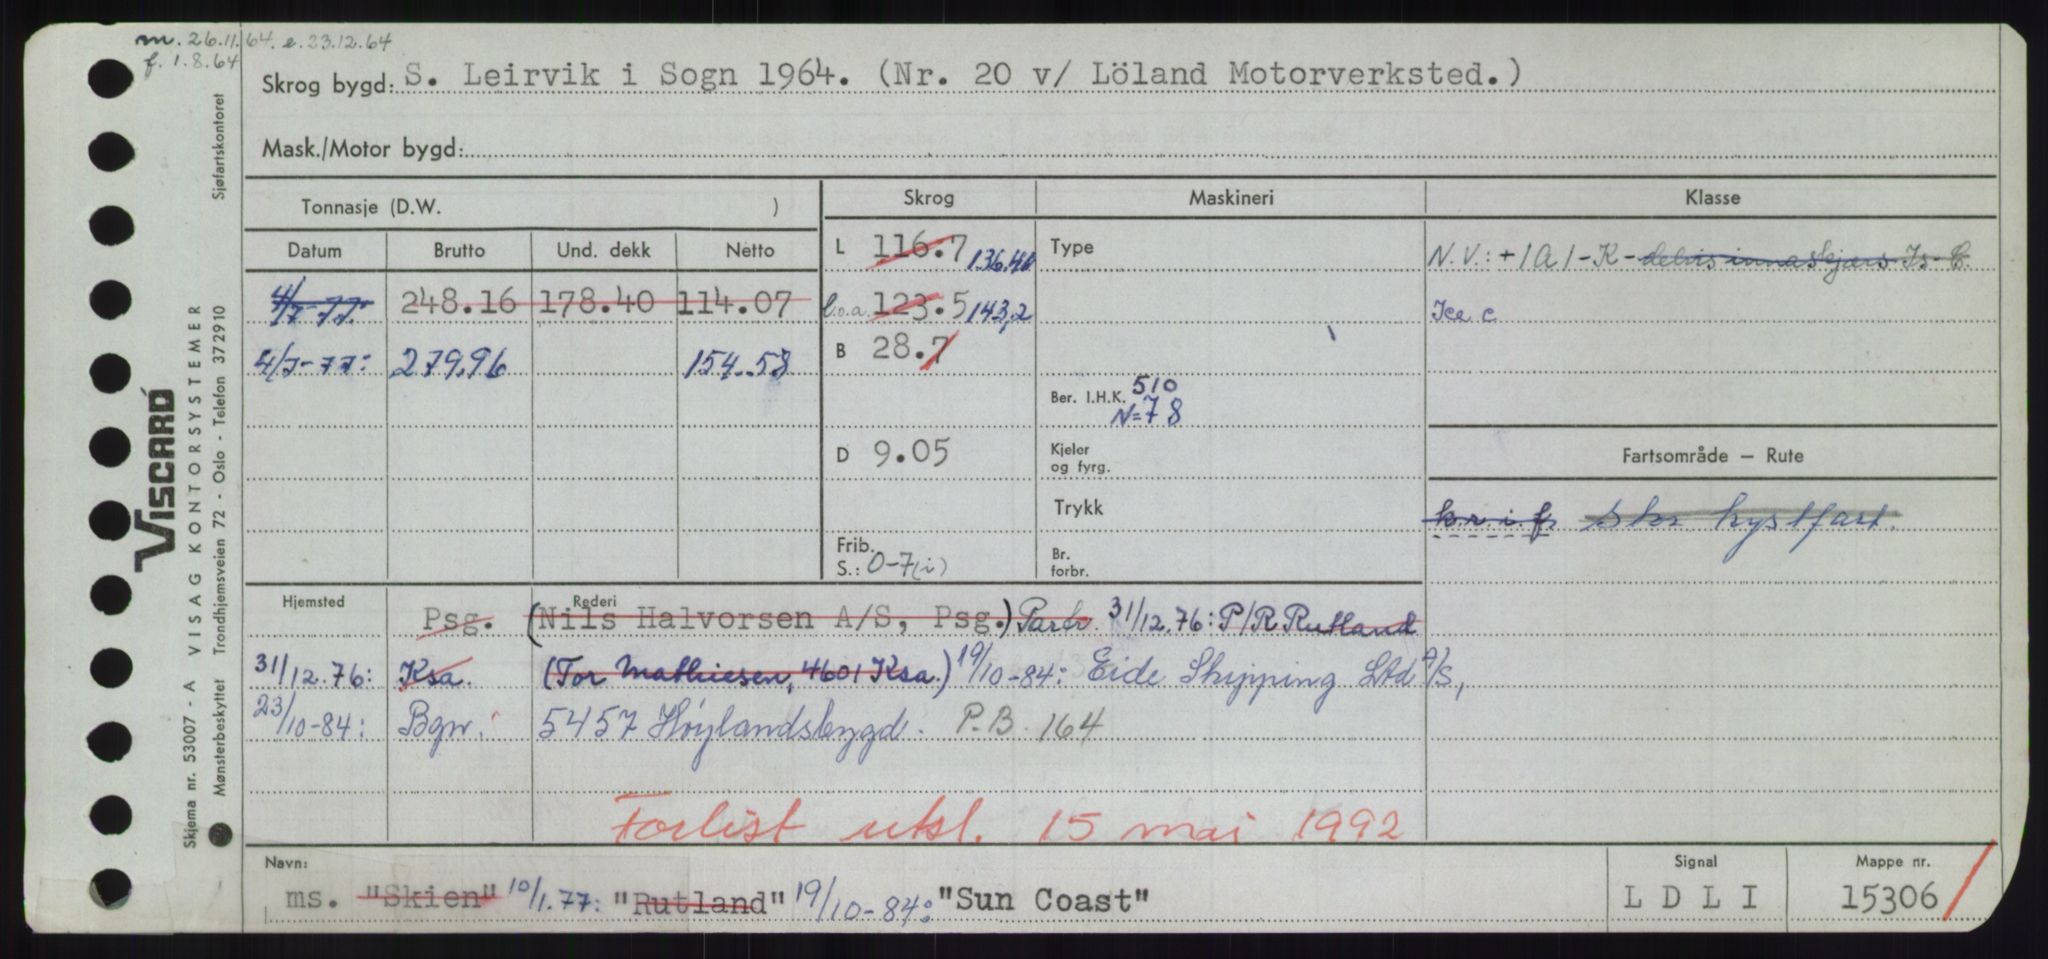 m. 26.11.64. e. 23.12.64
f. 1.8.64
Skrog bygd: S. Leirvik i Sogn 1964. (Nr. 20 v/ Löland Motorverksted.)
Mask./Motor bygd:
Tonnasje (D.W. )
Skrog
Maskineri
Klasse
Datum Brutto Und. dekk Netto
4/7-77. 248.16 178.40 114.07
4/7-77: 279,96 154.58
L 116.7 136.40
l.o.a. 123.5 143,2
B 28.7
D 9.05
Frib.
S.: 0-7(i)
Type
Ber. I.H.K. 510
N=78
Kjeler
og fyrg.
Trykk
Br.
forbr.
N.V.: +1A1-K- delvis innaskjærs Is-C.
Ice c
Fartsområde – Rute
k.r.i.f. Stor kystfart.
Hjemsted Rederi
Psg. (Nils Halvorsen A/S, Psg.) Partr. 31/12.76: P/R Rutland
31/12.76: Ksa. (Tor Mathiesen, 4601 Ksa.) 19/10-84: Eide Shipping Ltd A/S,
23/10-84: Bgn. 5457 Høylandsbygd. P.B. 164
Forlist utsl. 15 mai 1992
Navn:
ms. "Skien" 10/1.77: "Rutland" 19/10-84: "Sun Coast"
Signal
L D L I
Mappe nr.
15306
VISCARD
VISAG KONTORSYSTEMER
Skjema nr. 53007 - A
Mønsterbeskyttet Trondhjemsveien 72 - Oslo - Telefon 372910 Sjøfartskontoret